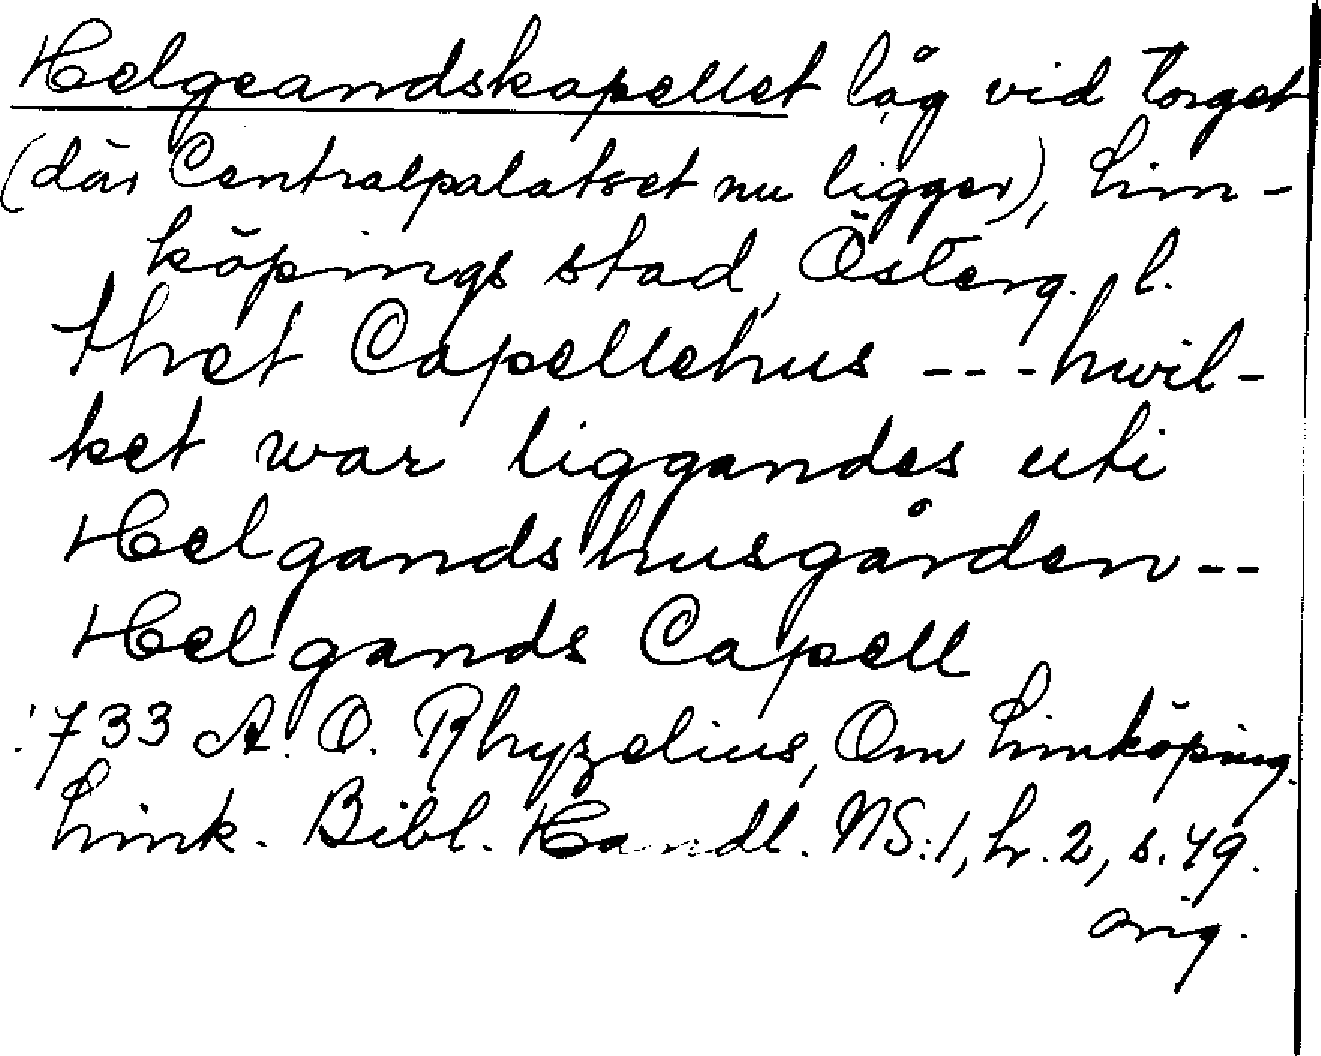 Helgeandskapellet låg vid torget
(där Centralpalatset nu ligger), Lin-
köpings stad, Österg. l.
thet Capellehus --- hwil-
ket war liggandes uti
Helgandshusgården --
Helgands Capell
1733 A. O. Rhyzelius, Om Linköping.
Link. Bibl. Handl. NS:1, h. 2, s. 49.
orig.